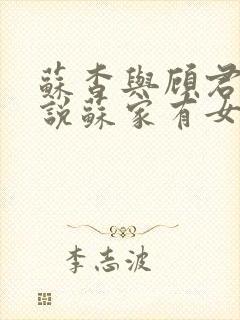 蘇杳與顧君
說蘇家有女
李志波